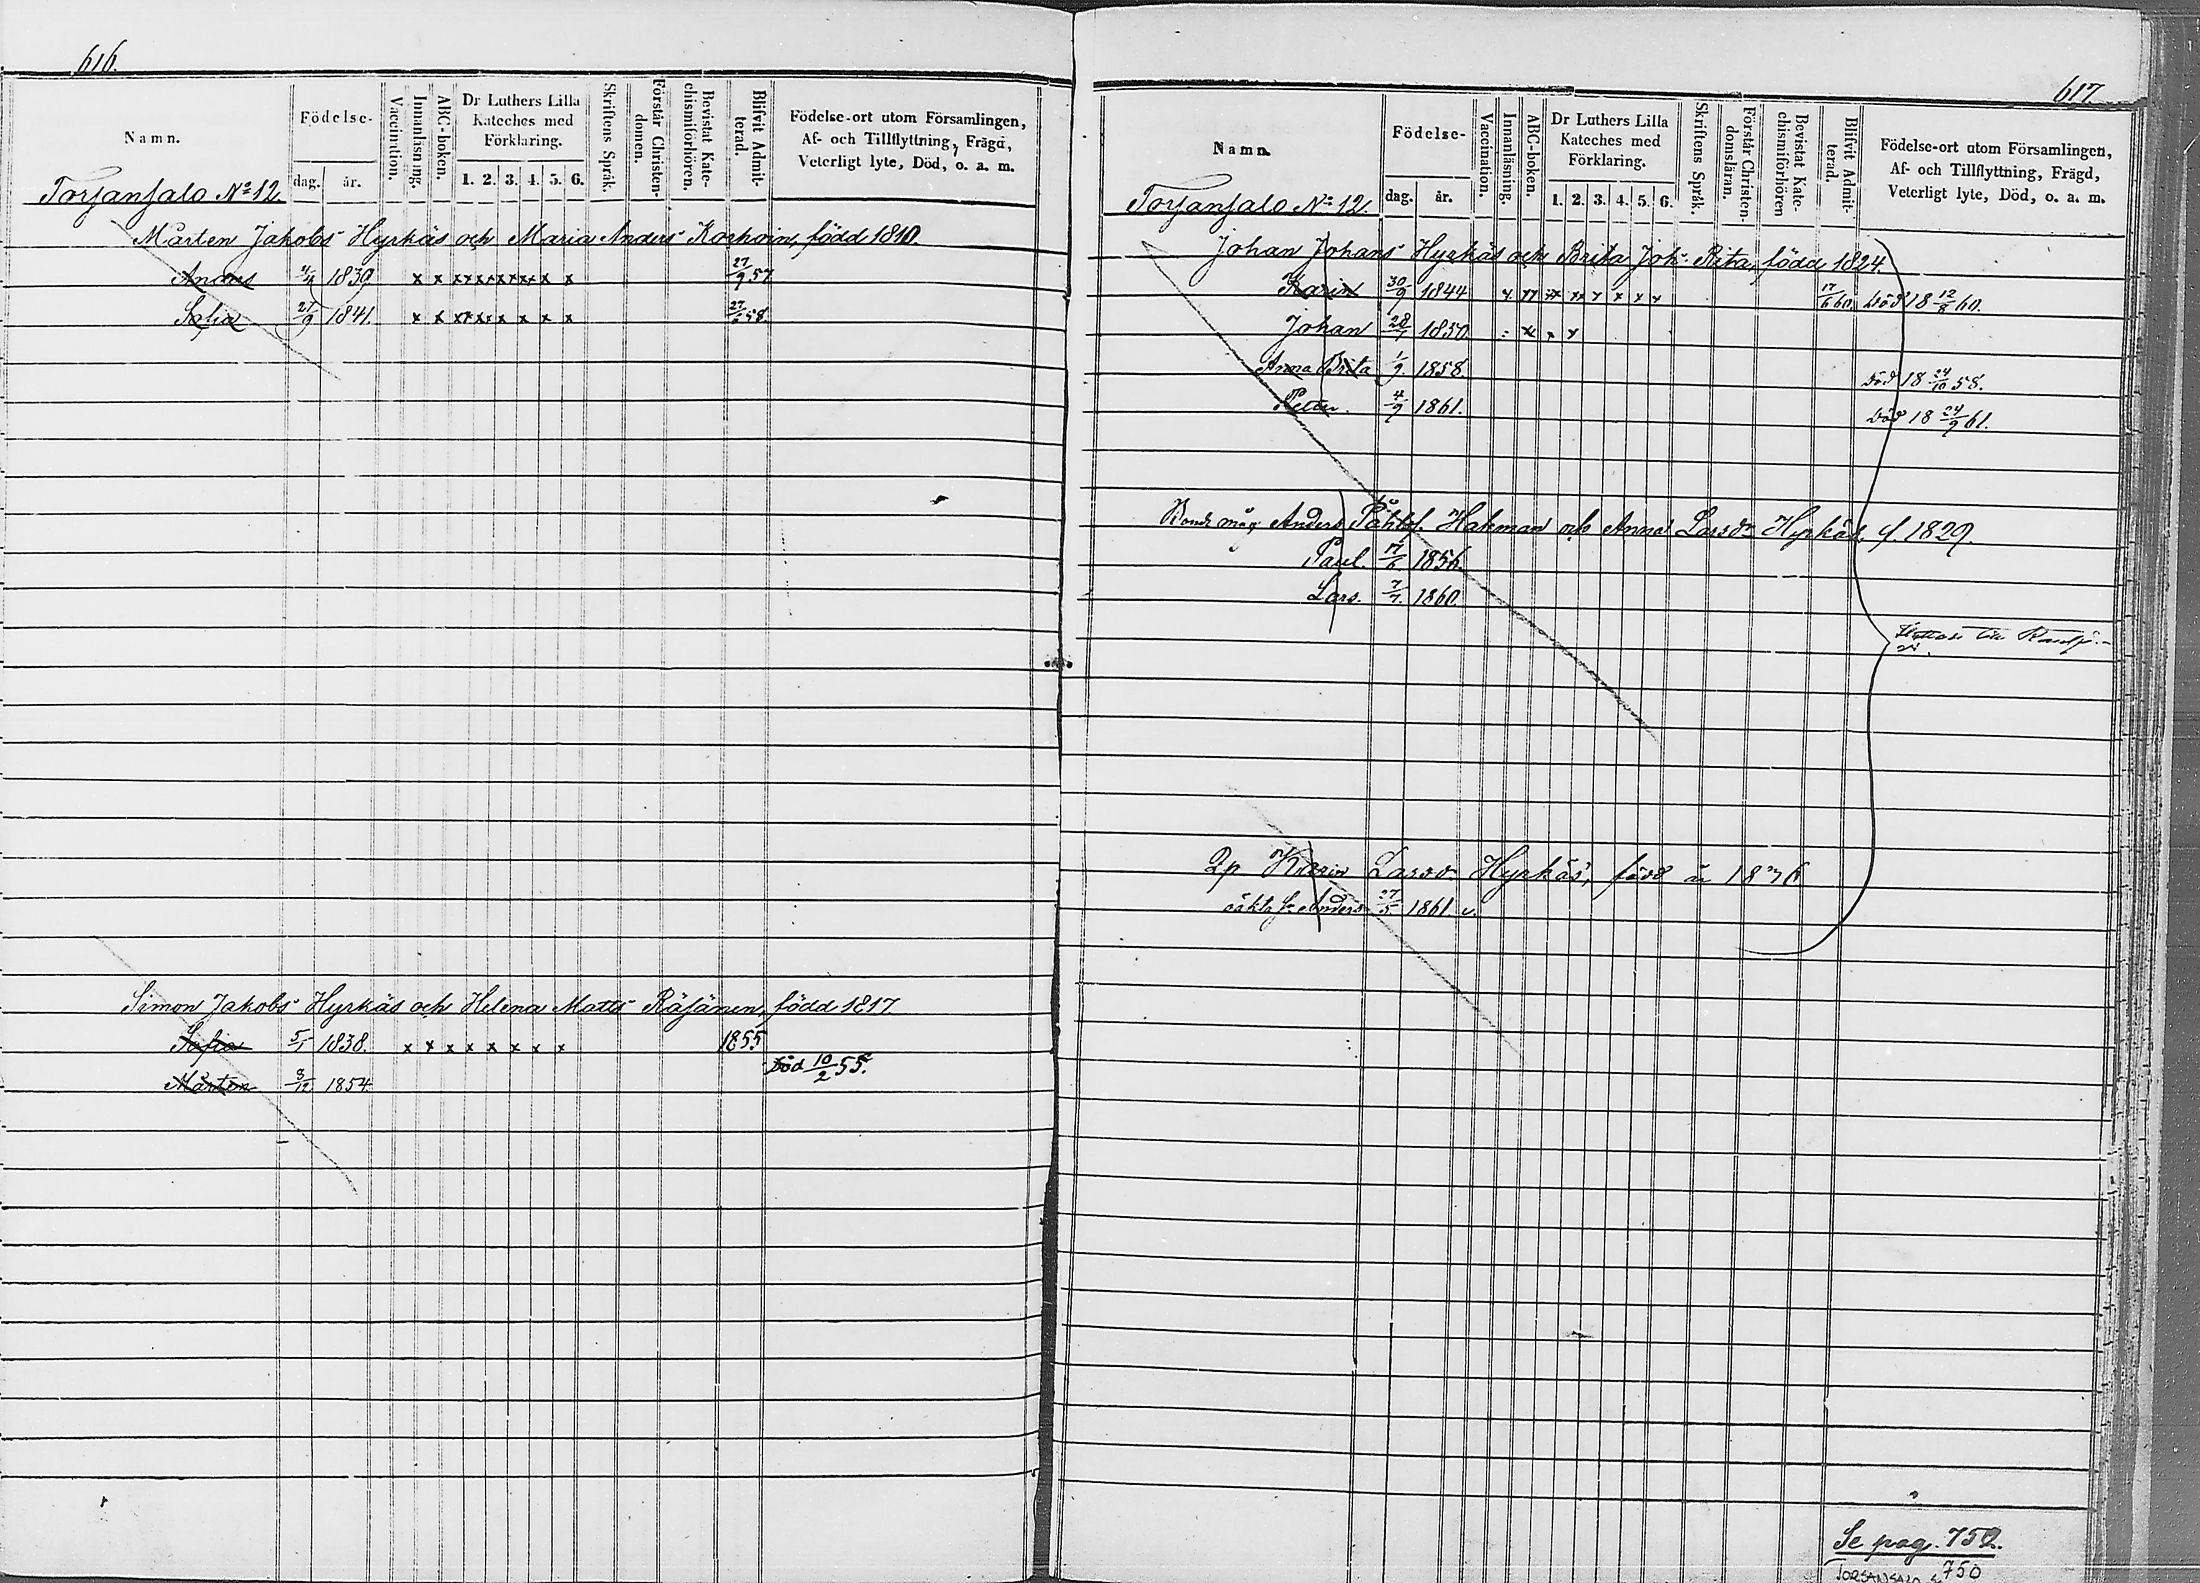 616.
Namn.
Födelse-
dag. år.
Vaccination.
Innanläsning.
ABC-boken.
Dr Luthers Lilla
Kateches med
Förklaring.
1. 2. 3. 4. 5. 6.
Skriftens Språk.
Förstår Christen-
domen.
Bevistat Kate-
chismiförhören.
Blifvit Admit-
terad.
Födelse-ort utom Församlingen,
Af- och Tillflyttning, Frägd,
Veterligt lyte, Död, o. a. m.
Torsansalo No 12.
Mårten Jakobs Hyrkäs och Maria Anders Korhoin, född 1810.
Anders 1839 x x x x x x x x 27/9 57
Sofia 27/9 1841. x x x x x x x x 58.
Simon Jakobs Hyrkäs och Helena Matts Räsänen, född 1817
Sofia 5/1 1838. x x x x x x x x 1855
Mårten 8/12 1854. Död 10/2 55.
617.
Namn.
Födelse-
dag. år.
Vaccination.
Innanläsning.
ABC-boken.
Dr Luthers Lilla
Kateches med
Förklaring.
1. 2. 3. 4. 5. 6.
Skriftens Språk.
Förstår Christen-
domsläran.
Bevistat Kate-
chismiförhören
Blifvit Admit-
terad.
Födelse-ort utom Församlingen,
Af- och Tillflyttning, Frägd,
Veterligt lyte, Död, o. a. m.
Torsansalo No 12.
Johan Johans Hyrkäs och Brita Joh. Rita, född 1824.
Karin 30/9 1844 x x x x x x x x 17/6 60. Död 18 12/8 60.
Johan 28/7 1850. x x
Anna Brita 1/9. 1858. Död 18 24/10 58.
Petter. 4/9 1861. Död 18 24/9 61.
Bonde måg Anders Påhlsf. Hakman och Anna Larsdr Hyrkäs. f. 1829.
Paul. 17/6 1856.
Lars. 7/7. 1860.
till
Qp Karin Larsdr Hyrkäs, född år 1836
oäkta s. Anders 27/5 1861
Se pag. 752.
TORSANSALO s. 750